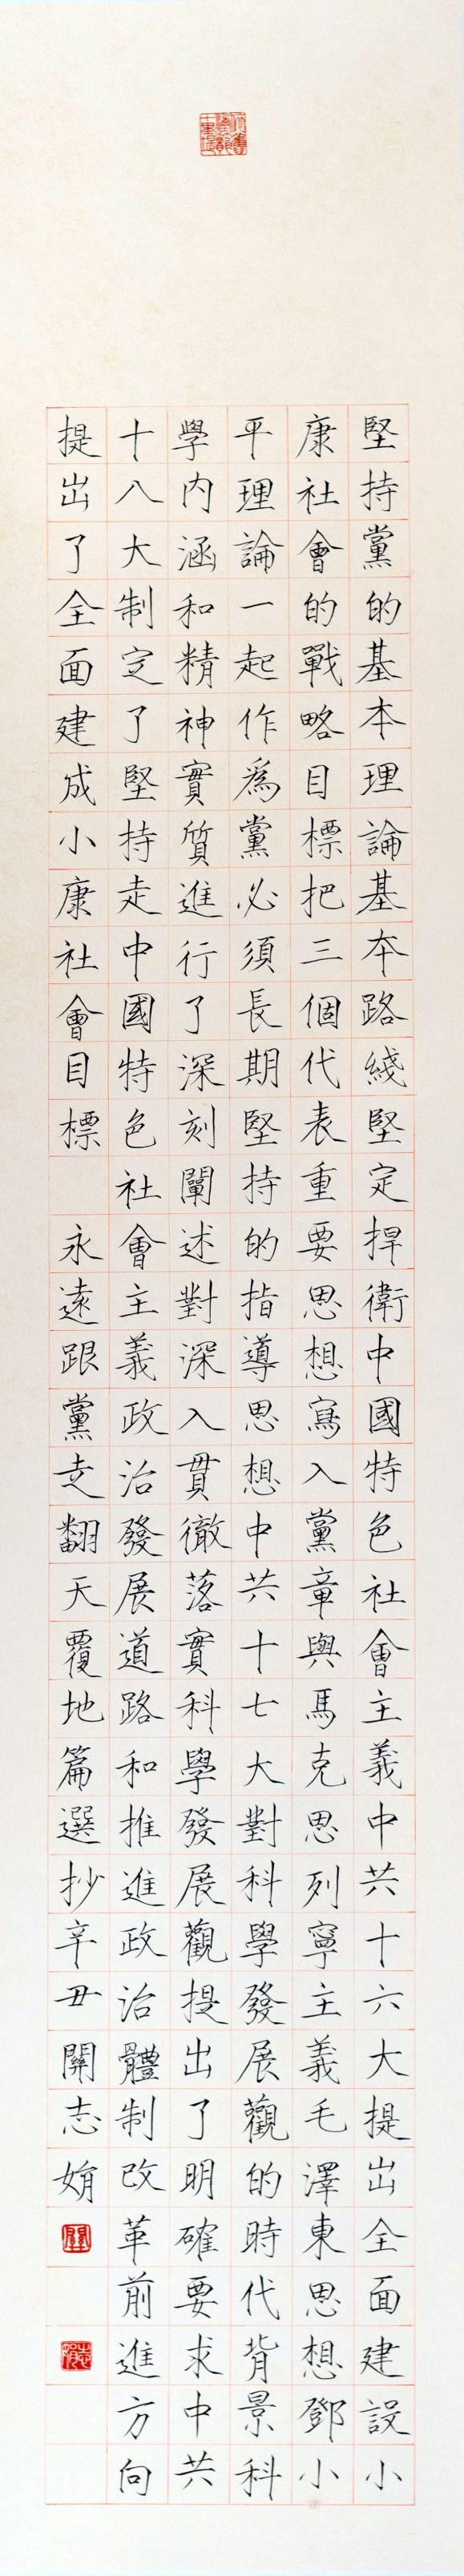 堅持黨的基本理論基本路綫堅定捍衛中國特色社會主義中共十六大提出全面建設小
康社會的戰略目標把三個代表重要思想寫入黨章與馬克思列寧主義毛澤東思想鄧小
平理論一起作爲黨必須長期堅持的指導思想中共十七大對科學發展觀的時代背景科
學內涵和精神實質進行了深刻闡述對深入貫徹落實科學發展觀提出了明確要求中共
十八大制定了堅持走中國特色社會主義政治發展道路和推進政治體制改革前進方向
提出了全面建成小康社會目標 永遠跟黨走翻天覆地篇選抄辛丑關志娟